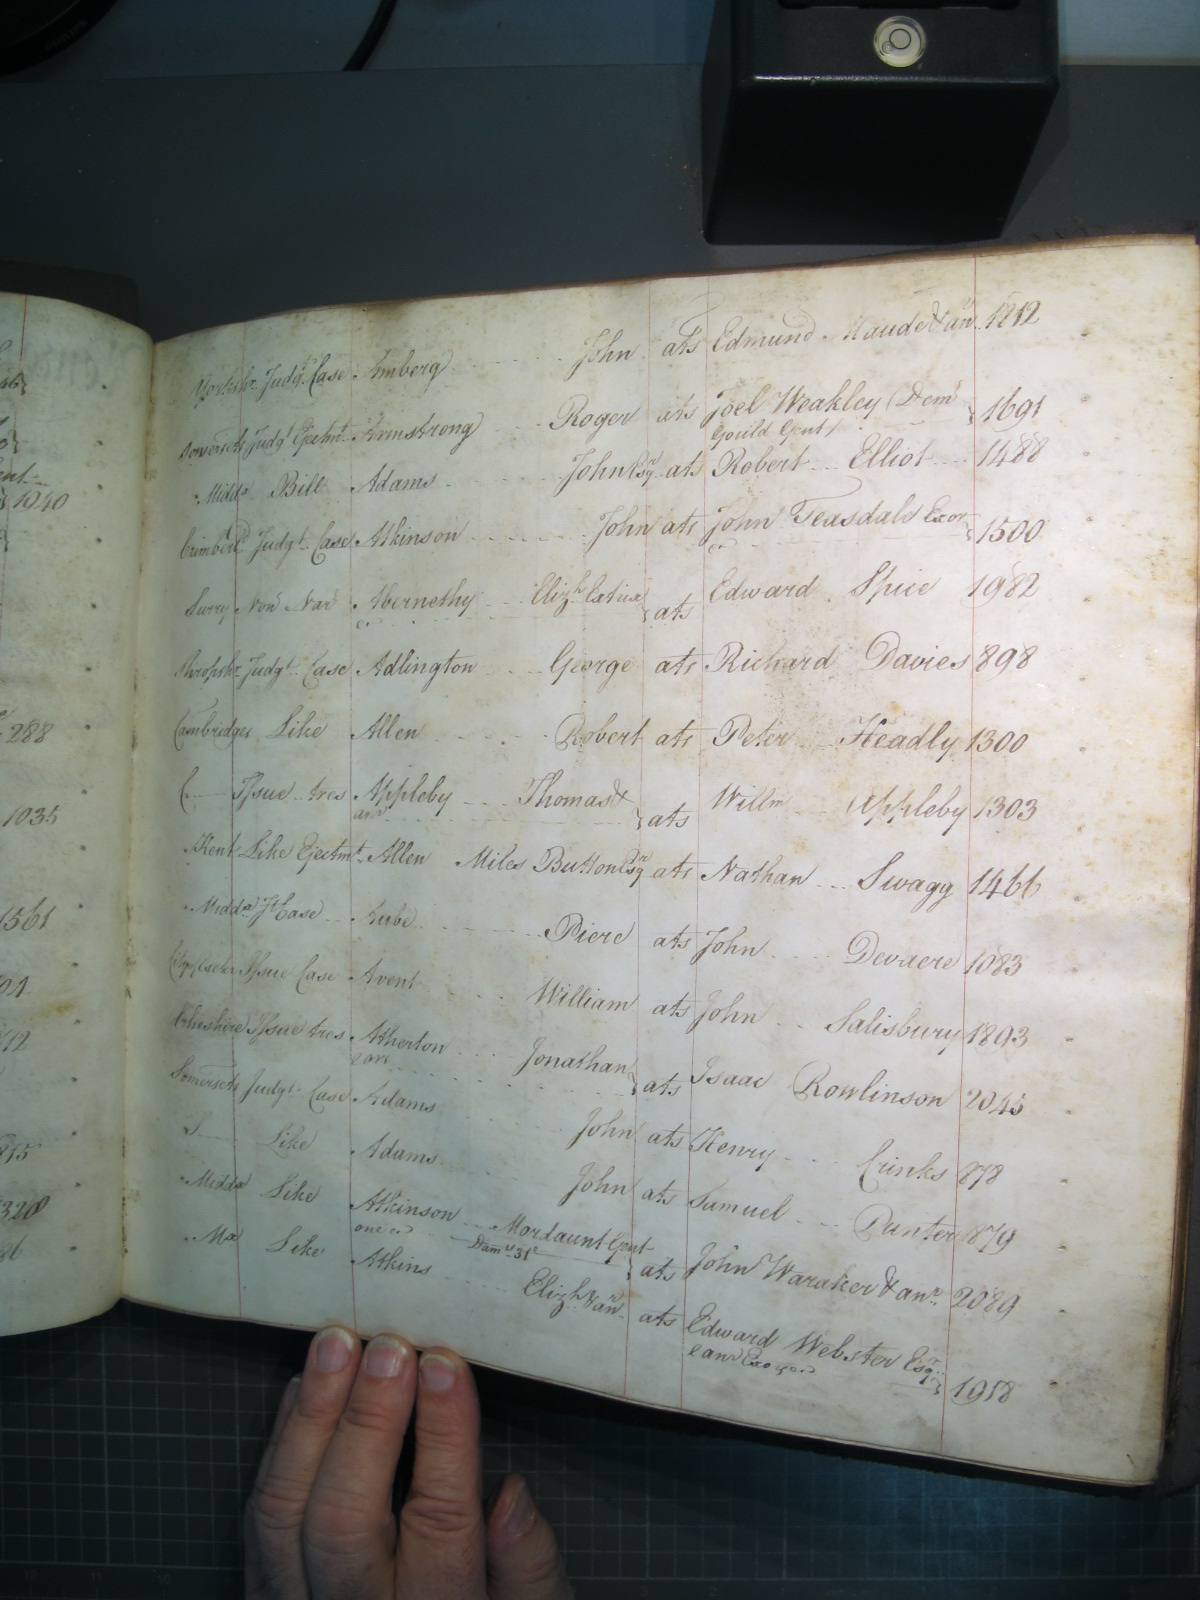 Yorkshr. Judgt. Case Amberg John ats Edmund Maude & anr. 1812
Somersets Judgt Ejectmt. Armstrong Roger ats Joel Weakley (Dem
Gould Gent) 1691
Middx Bill Adams John Esqr. ats Robert Elliot 1488
Judgt. Case Atkinson John ats John Teasdale Exor 1500
Surry Abernethy Elizh. ats Edward Spice 1982
Shropshr. Judgt. Case Adlington George ats Richard Davies 898
Cambridges Like Allen Robert ats Peter Headly 1300
Issue tres Appleby Thomas & ats Willm Appleby 1303
anr
Kent Like Ejectmt. Allen Miles Button Esqr ats Nathan Swagg 1466
Middx Case Aube Piere ats John Devaere 1083
Issue Case Avent William ats John Salisbury 1893
Cheshire Issue tres Atherton Jonathan ats Isaac Rowlinson 2045
Somersets Judgt. Case Adams John ats Henry Crinks 878
Like Adams John ats Samuel Punter 879
Middx Like Atkinson Mordaunt Gent ats John Waraker & anr. 2089
one
Mx Like Atkins Elizh & anr. ats Edward Webster Esqr. 1918
1940
288
1035
1561